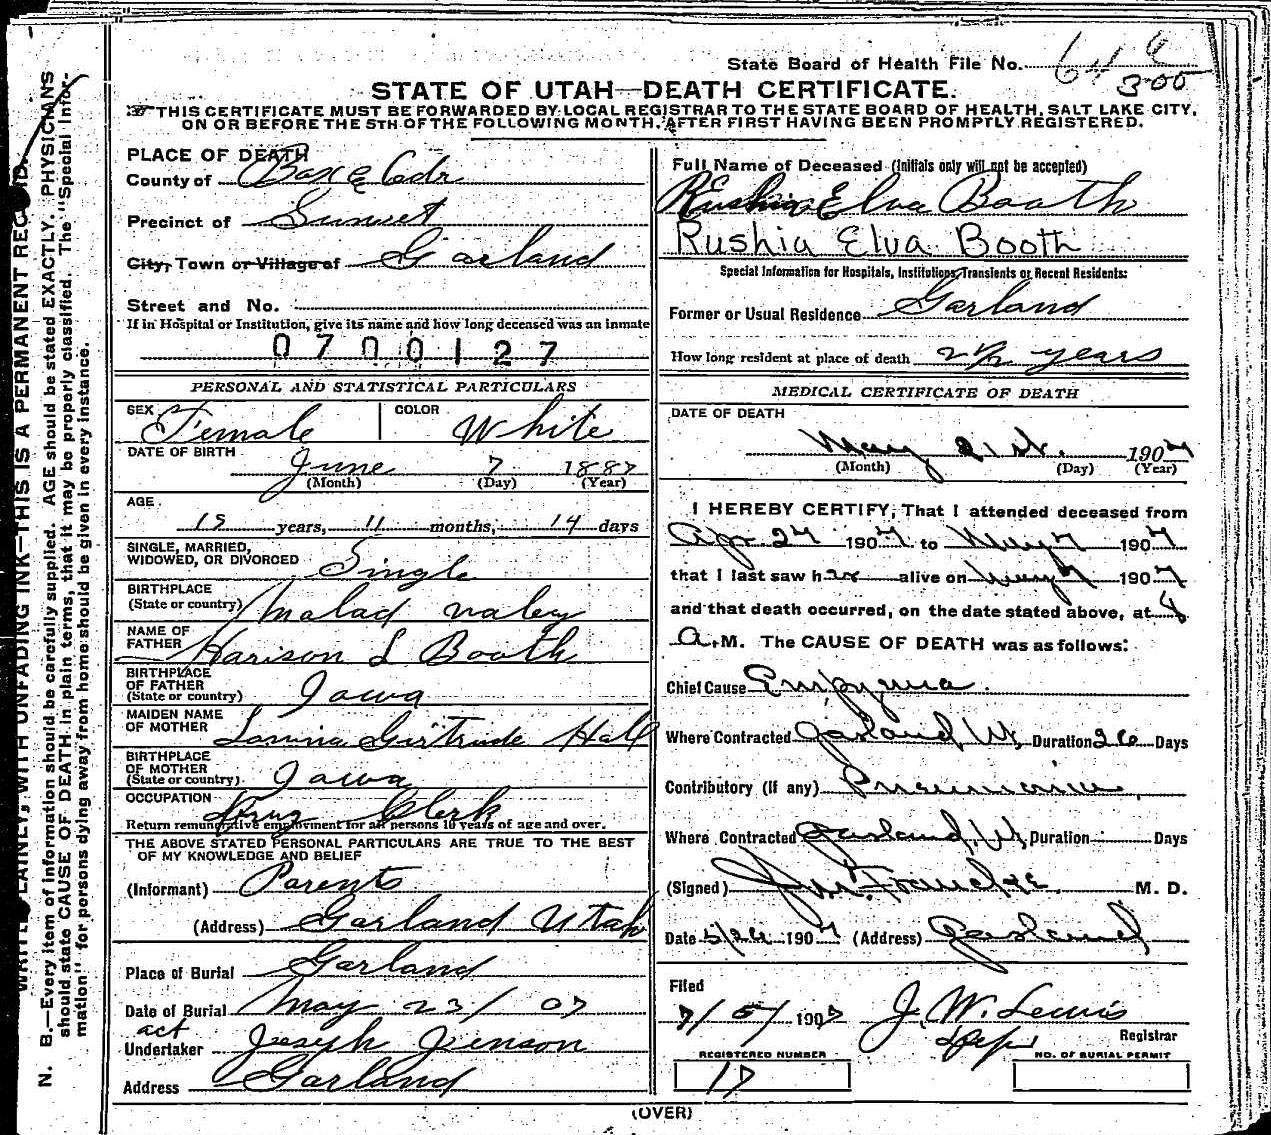 State Board of Health File No.
300
STATE OF UTAH—DEATH CERTIFICATE.
THIS CERTIFICATE MUST BE FORWARDED BY LOCAL REGISTRAR TO THE STATE BOARD OF HEALTH, SALT LAKE CITY,
ON OR BEFORE THE 5TH OF THE FOLLOWING MONTH, AFTER FIRST HAVING BEEN PROMPTLY REGISTERED.
PLACE OF DEATH
County of Box Elder
Precinct of Sunset
City, Town or Village of Garland
Street and No.
If in Hospital or Institution, give its name and how long deceased was an inmate
0700127
PERSONAL AND STATISTICAL PARTICULARS
SEX Female COLOR White
DATE OF BIRTH June 7 1887
(Month) (Day) (Year)
AGE
19 years, 11 months, 14 days
SINGLE, MARRIED,
WIDOWED, OR DIVORCED Single
BIRTHPLACE
(State or country) Malad valey
NAME OF
FATHER Harison L Booth
BIRTHPLACE
OF FATHER
(State or country) Iowa
MAIDEN NAME
OF MOTHER Girtrude Hall
BIRTHPLACE
OF MOTHER
(State or country) Iowa
OCCUPATION Drug Clerk
Return remunerative employment for all persons 10 years of age and over.
THE ABOVE STATED PERSONAL PARTICULARS ARE TRUE TO THE BEST
OF MY KNOWLEDGE AND BELIEF
(Informant) Parents
(Address) Garland Utah
Place of Burial Garland
Date of Burial May 23/07
act
Undertaker Joseph Jenson
Address Garland
Full Name of Deceased (Initials only will not be accepted)
Rushia Elva Booth
Rushia Elva Booth
Special Information for Hospitals, Institutions, Transients or Recent Residents:
Former or Usual Residence Garland
How long resident at place of death 2½ years
MEDICAL CERTIFICATE OF DEATH
DATE OF DEATH
May 21st. 1907
(Month) (Day) (Year)
I HEREBY CERTIFY, That I attended deceased from
Apr 27 1907 to May 7 1907
that I last saw her alive on May 7 1907
and that death occurred, on the date stated above, at 4
A. M. The CAUSE OF DEATH was as follows:
Chief Cause Empyema.
Where Contracted Garland U, Duration 26 Days
Contributory (If any) Pneumonia
Where Contracted Garland, U, Duration Days
(Signed) M. D.
Date 5/26 1907 (Address) Garland
Filed
7/5/ 1907 J. W. Lewis
Dep Registrar
REGISTERED NUMBER
17
NO. OF BURIAL PERMIT
(OVER)
WRITE PLAINLY, WITH UNFADING INK—THIS IS A PERMANENT RECORD.
N. B.—Every item of information should be carefully supplied. AGE should be stated EXACTLY. PHYSICIANS
should state CAUSE OF DEATH in plain terms, that it may be properly classified. The "Special Infor-
mation" for persons dying away from home should be given in every instance.